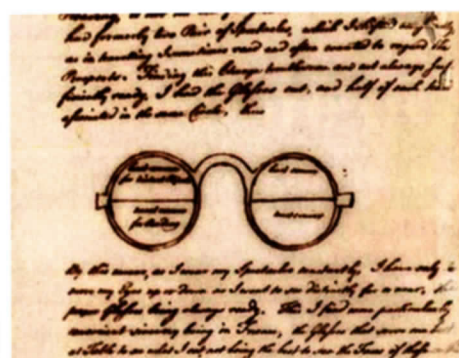 had formerly two Pair of Spectacles, which I shifted
as in travelling I sometimes read and often wanted to regard the
Prospects. Finding this Change troublesome and not always suf-
ficiently ready, I had the Glasses cut, and half of each kind
associated in the same Circle, thus
least convex
for distant Objects
least convex
most convex
for Reading
most convex
By this means, as I wear my Spectacles constantly, I have only to
move my Eyes up or down as I want to see distinctly far or near, the
proper Glasses being always ready. This I find more particularly
convenient since my being in France, the Glasses that serve me best
at Table to see what I eat, not being the best to see the Faces of those